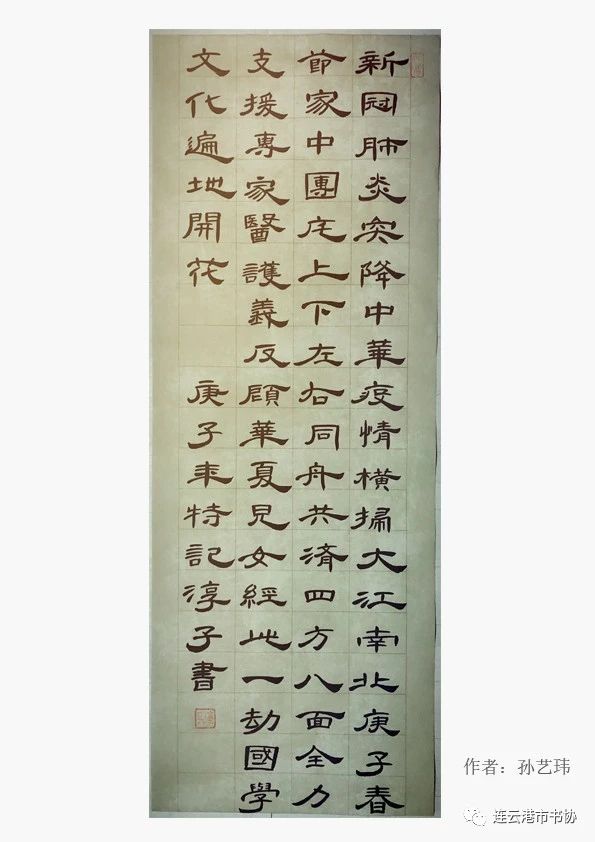 新冠肺炎突降中華疫情橫掃大江南北庚子春
節家中團宅上下左右同舟共濟四方八面全力
支援專家醫護義反顧華夏兒女經此一劫國學
文化遍地開花 庚子年特記淳子書
作者：孙艺玮
连云港市书协